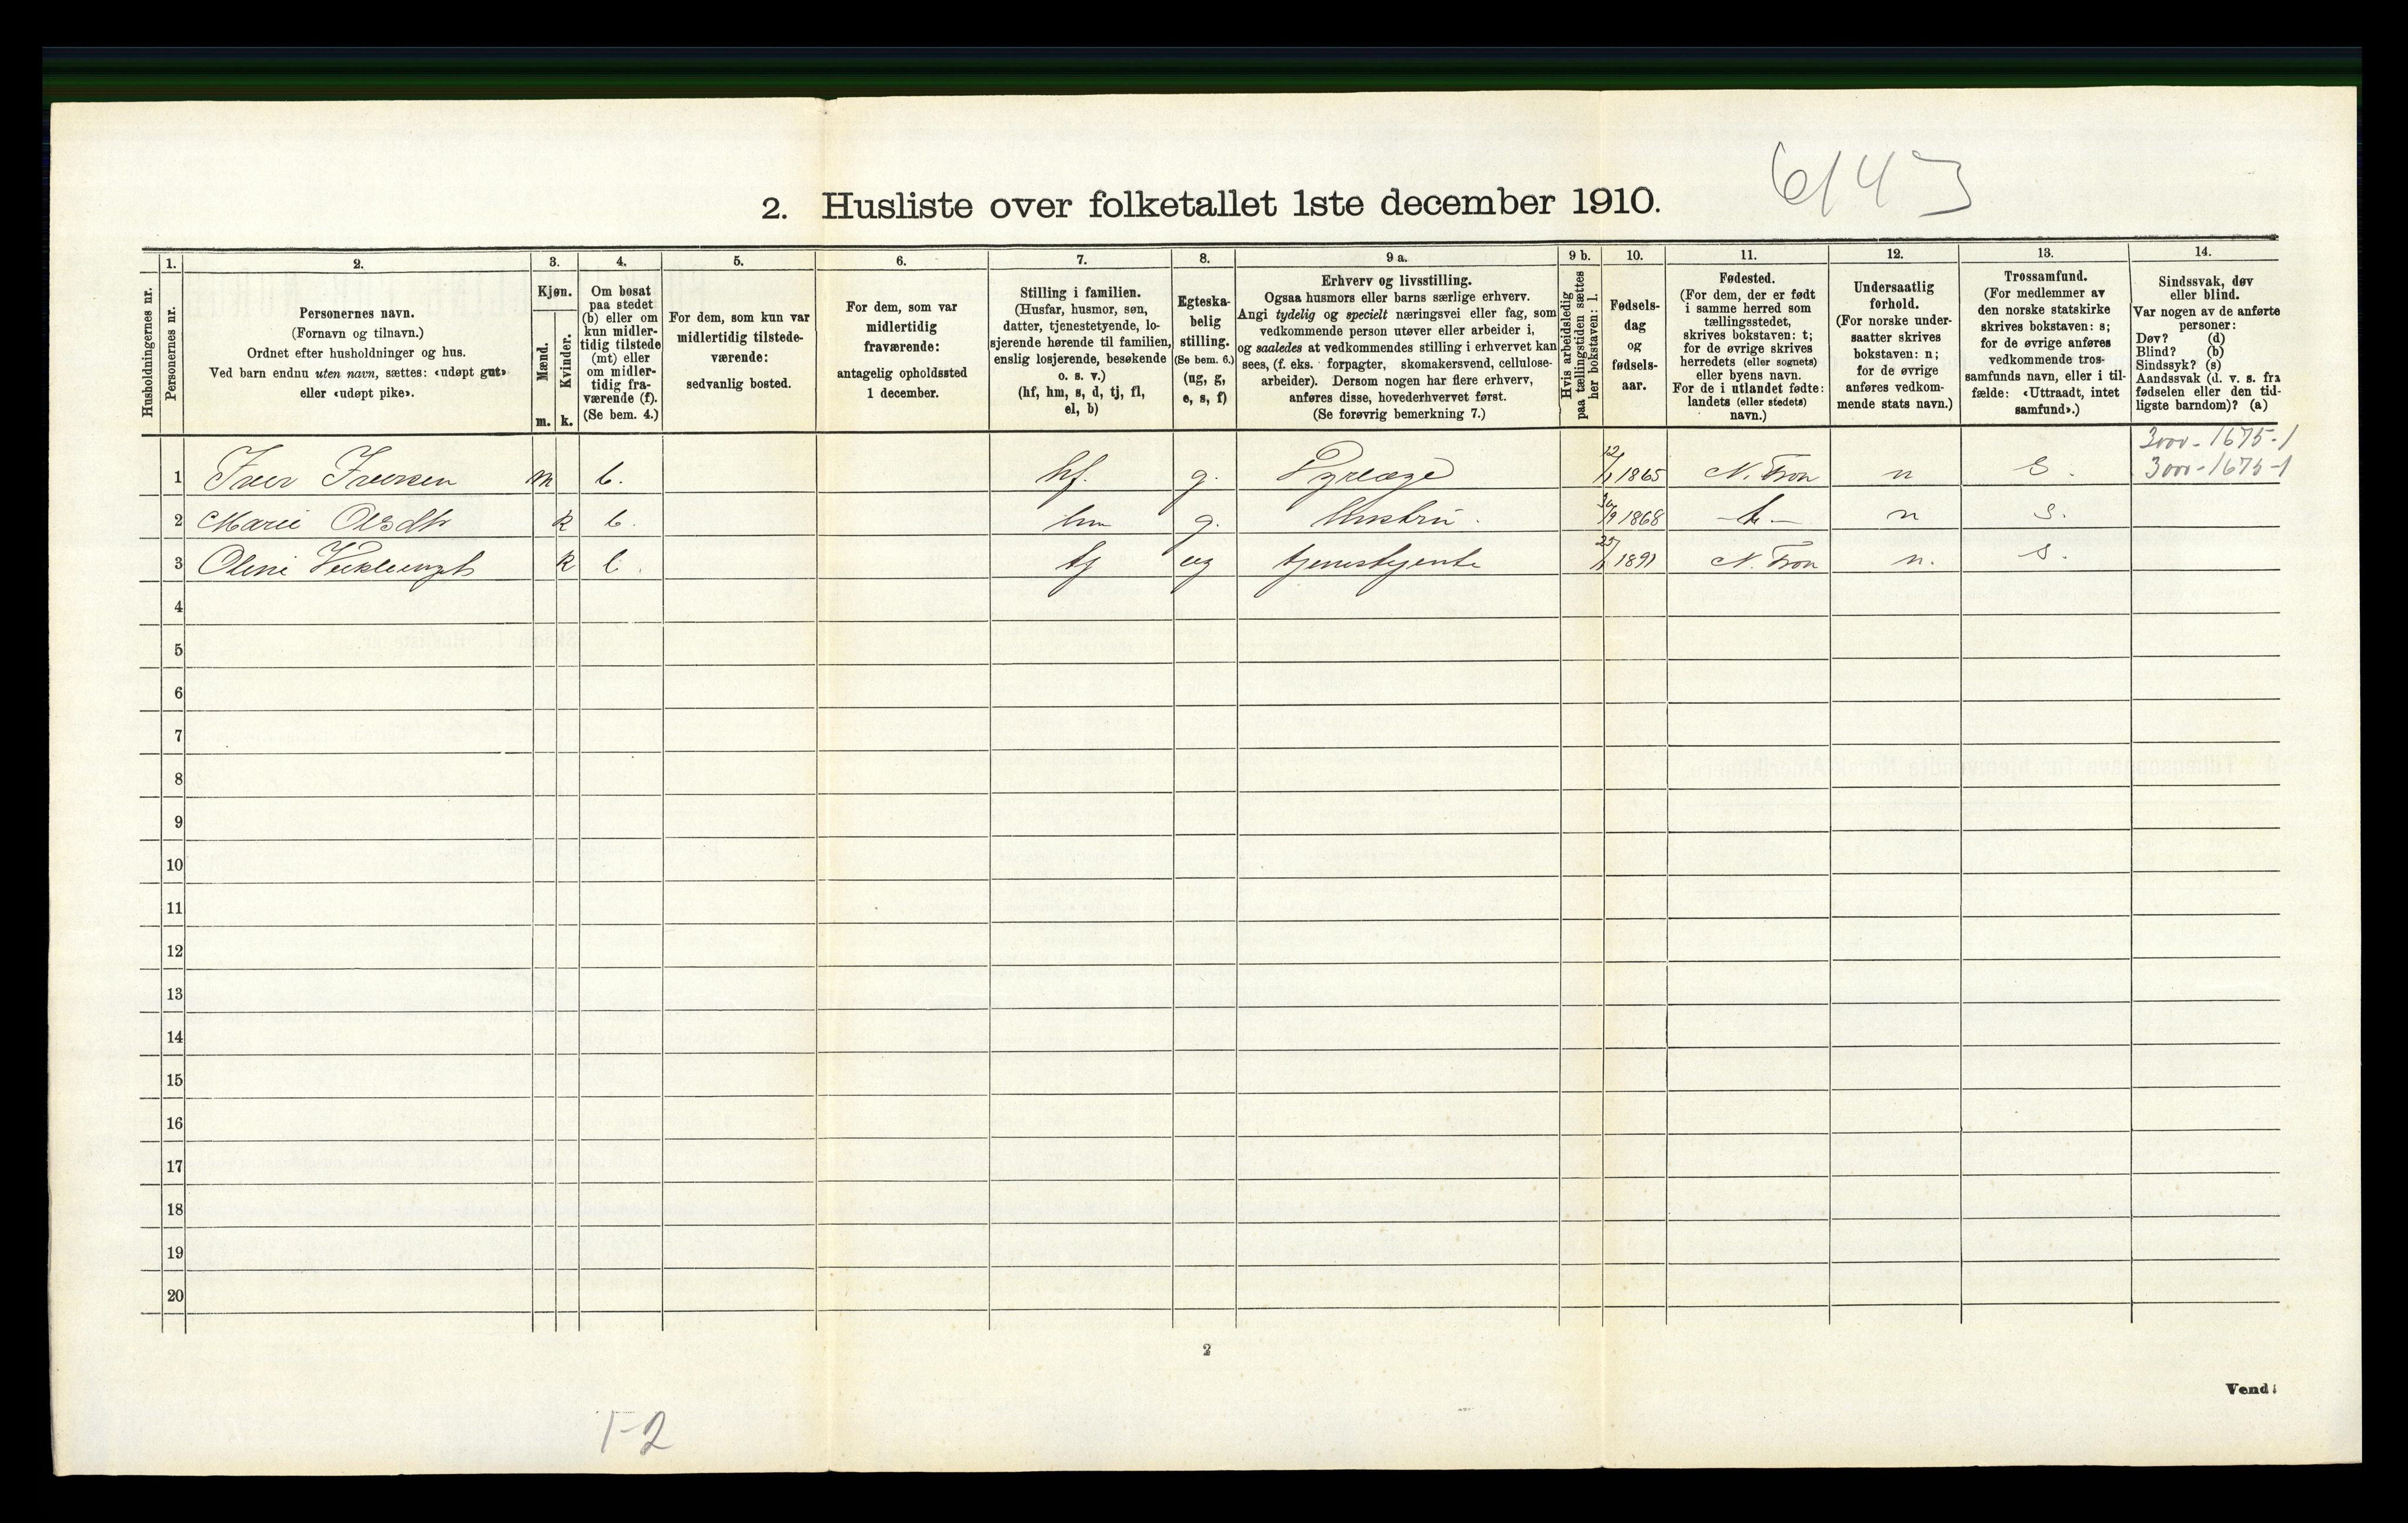 6143
2. Husliste over folketallet 1ste december 1910.
Husholdningernes nr.
1. Personernes nr.
2. Personernes navn.
(Fornavn og tilnavn.)
Ordnet efter husholdninger og hus.
Ved barn endnu uten navn, sættes: «udøpt gut»
eller «udøpt pike».
3. Kjøn.
Mænd. m.
Kvinder. k.
4. Om bosat
paa stedet
(b) eller om
kun midler-
tidig tilstede
(mt) eller
om midler-
tidig fra-
værende (f).
(Se bem. 4.)
5. For dem, som kun var
midlertidig tilstede-
værende:
sedvanlig bosted.
6. For dem, som var
midlertidig
fraværende:
antagelig opholdssted
1 december.
7. Stilling i familien.
(Husfar, husmor, søn,
datter, tjenestetyende, lo-
sjerende hørende til familien,
enslig losjerende, besøkende
o. s. v.)
(hf, hm, s, d, tj, fl,
el, b)
8. Egteska-
belig
stilling.
(Se bem. 6.)
(ug, g,
e, s, f)
9 a. Erhverv og livsstilling.
Ogsaa husmors eller barns særlige erhverv.
Angi tydelig og specielt næringsvei eller fag, som
vedkommende person utøver eller arbeider i,
og saaledes at vedkommendes stilling i erhvervet kan
sees, (f. eks. forpagter, skomakersvend, cellulose-
arbeider). Dersom nogen har flere erhverv,
anføres disse, hovederhvervet først.
(Se forøvrig bemerkning 7.)
9 b. Hvis arbeidsledig
paa tællingstiden sættes
her bokstaven: l.
10. Fødsels-
dag
og
fødsels-
aar.
11. Fødested.
(For dem, der er født
i samme herred som
tællingsstedet,
skrives bokstaven: t;
for de øvrige skrives
herredets (eller sognets)
eller byens navn.
For de i utlandet fødte:
landets (eller stedets)
navn.)
12. Undersaatlig
forhold.
(For norske under-
saatter skrives
bokstaven: n;
for de øvrige
anføres vedkom-
mende stats navn.)
13. Trossamfund.
(For medlemmer av
den norske statskirke
skrives bokstaven: s;
for de øvrige anføres
vedkommende tros-
samfunds navn, eller i til-
fælde: «Uttraadt, intet
samfund».)
14. Sindssvak, døv
eller blind.
Var nogen av de anførte
personer:
Døv? (d)
Blind? (b)
Sindssyk? (s)
Aandssvak (d. v. s. fra
fødselen eller den tid-
ligste barndom)? (a)
3000-1675-1
1 Iver Iversen m b. hf. g. Dyrlæge 1865 N. Fron n s. 3000-1675-1
2 Marie Olsdtr k b. hm g. Hustru. 1868 -t- n s.
3 Oline k b. tj ug tjenestejente 1891 N. Fron n. s.
4
5
6
7
8
9
10
11
12
13
14
15
16
17
18
19
20
2
Vend!
1-2